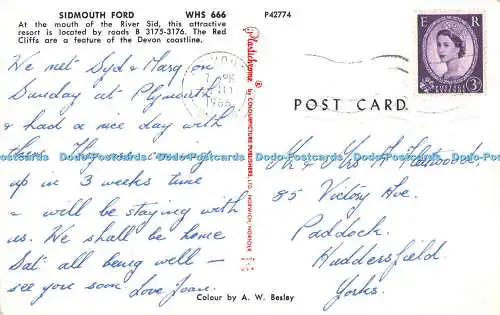 SIDMOUTH FORD WHS 666
At the mouth of the River Sid, this attractive
resort is located by roads B 3175-3176. The Red
Cliffs are a feature of the Devon coastline.
P42774
We met Syd & Mary on
Sunday at Plymouth
& had a nice day with
them. They are coming
up in 3 weeks time
& will be staying with
us. We shall be home
Sat' all being well —
see you soon Love Joan.
Plastichrome ® by COLOURPICTURE PUBLISHERS, LTD. NORWICH, NORFOLK
1966
E R
POSTAGE
REVENUE
3D
POST CARD
Mr & Mrs A Fleetwood,
85 Victory Ave.
Paddock.
Huddersfield
Yorks.
Colour by A. W. Besley
Dodo-Postcards Dodo-Postcards Dodo-Postcards Dodo-Postcards Dodo-Postcards Dodo-Postcards Dodo-Postcards